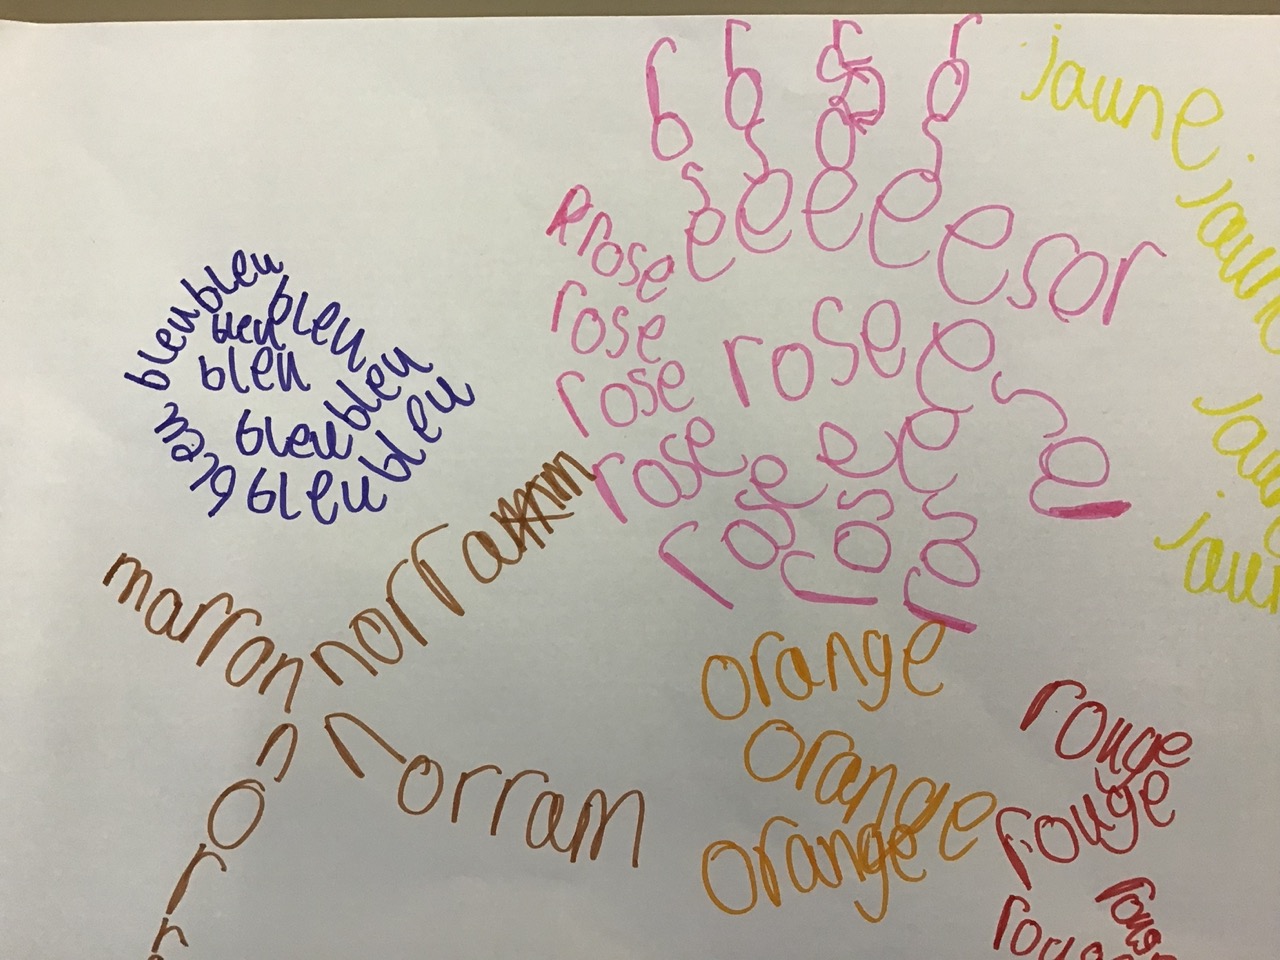 rose
rose
rose
rose
esor
Rrose
rose
rose
rose
rose
rose
rose
rose
rose
jaune
jaune
jau
jaun
bleu
bleu
bleu
bleu
bleu
bleu
bleu
bleu
bleu
bleu
marron
norram
norram
norr
orange
orange
orange
rouge
rouge
rouge
roug